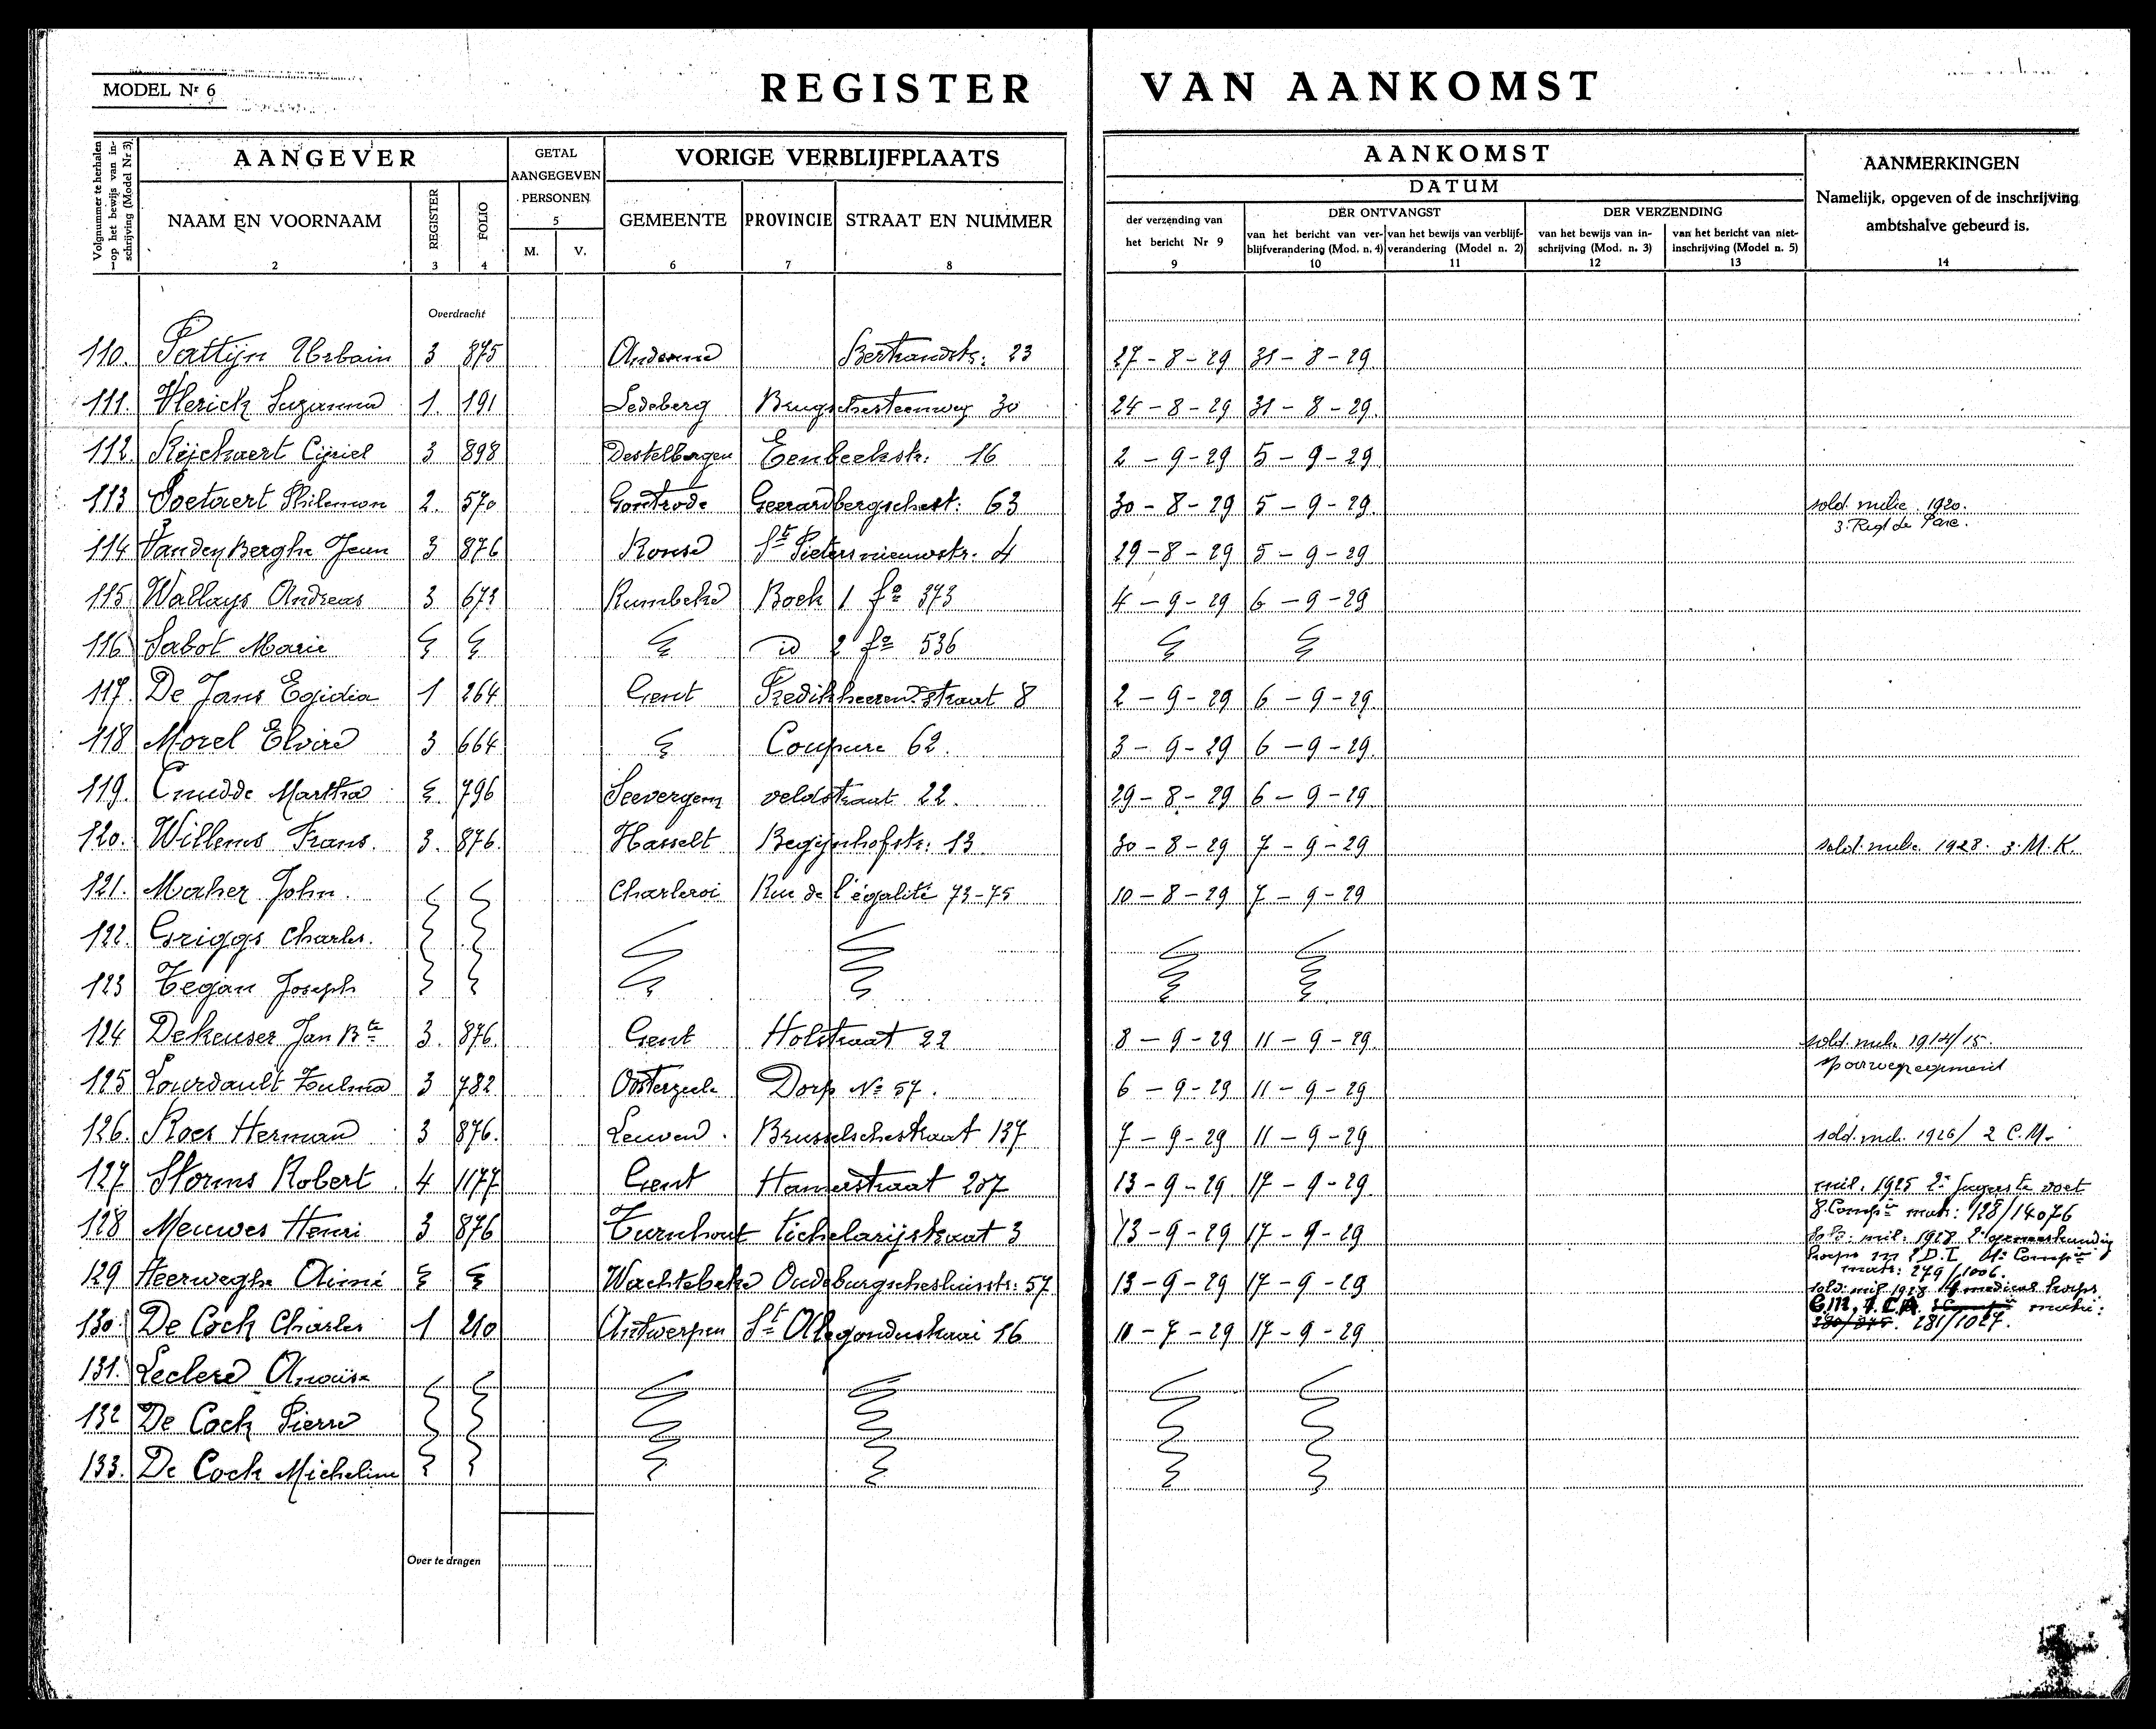 MODEL Nr 6
REGISTER VAN AANKOMST
Volgnummer te herhalen op het bewijs van inschrijving (Model Nr 3)
1
AANGEVER
NAAM EN VOORNAAM
2
REGISTER
3
FOLIO
4
GETAL
AANGEGEVEN
PERSONEN
5
M. V.
VORIGE VERBLIJFPLAATS
GEMEENTE PROVINCIE STRAAT EN NUMMER
6 7 8
AANKOMST
DATUM
der verzending van
het bericht Nr 9
9
DER ONTVANGST
van het bericht van ver-
blijfverandering (Mod. n. 4)
10
van het bewijs van verblijf-
verandering (Model n. 2)
11
DER VERZENDING
van het bewijs van in-
schrijving (Mod. n. 3)
12
van het bericht van niet-
inschrijving (Model n. 5)
13
AANMERKINGEN
Namelijk, opgeven of de inschrijving
ambtshalve gebeurd is.
14
Overdracht
110. Pattijn Urbain 3 875 Andenne Bertrandstr: 23 27-8-29 31-8-29
111. Herick Suzanna 1. 191 Ledeberg Brugschesteenweg 30 24-8-29 31-8-29.
112. Rijckaert Cyriel 3 898 Destelbergen Eenbeekstr: 16 2-9-29 5-9-29
113 Soetaert Philemon 2. 570 Gontrode Geerardbergschest: 63 30-8-29 5-9-29. sold. milie. 1920.
3. Reg de Parc.
114 Vanden Berghe Jean 3 876 Ronse St Pietersnieuwstr. 4 29-8-29 5-9-29
115 Wallays Andreas 3. 673 Rumbeke Boek 1 fo 373 4-9-29 6-9-29
116 Sabot Marie id 2 fo 536
117. De Jans Egidia 1 264 Gent Predikheeren straat 8 2-9-29 6-9-29
118 Morel Elvire 3 664 Coupure 62. 3-9-29 6-9-29.
119. Cnudde Martha 796 Seevergem veldstraat 22. 29-8-29 6-9-29
120. Willems Frans. 3. 876. Hasselt Begijnhofstr: 13 30-8-29 7-9-29 sold. milie. 1928. 3. M. K.
121. Maher John. Charleroi Rue de l'égalité 73-75 10-8-29 7-9-29
122. Griggs Charles.
123 Tegan Joseph
124 Dekeuser Jan Bte 3. 876. Gent Holstraat 22 8-9-29 11-9-29 sold. milie 1914/15.
spoorwegregiment
125 Lourdault Zulma 3 782 Oosterzeele Dorp No 57. 6-9-29 11-9-29
126. Roes Herman 3 876. Leuven. Brusselschestraat 137 7-9-29 11-9-29 sold. mil. 1926/ 2 C.M.
127 Storms Robert 4 1177 Gent Hamerstraat 207 13-9-29 17-9-29 mil. 1925 2e Jagers te voet
8. Compie matr: 128/14076
128 Meuwes Henri 3 876 Turnhout Tichelarijstraat 3 13-9-29 17-9-29 sold: mil: 1928 geneeskundig
korps D.I. Compie
matr: 279/1006.
129 Heerweghe Aimé Wachtebeke Oudeburgschesluisstr: 57 13-9-29 17-9-29 sold: mil 1928 medical korps
C.A. matri:
281/1027.
130 De Cock Charles 1 210 Antwerpen St Aldegonduskaai 16 10-7-29 17-9-29
131. Leclere Anaïse
132 De Cock Pierre
133. De Cock Micheline
Over te dragen